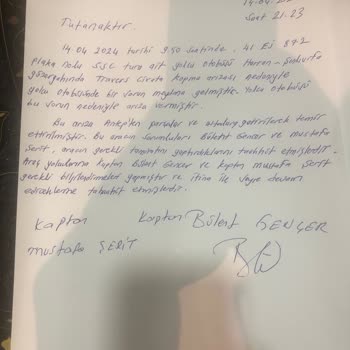 14.04.2
Saat 21.23
Tutanaktır.
14.04.2024 tarihi 9:50 saatinde, 41 EJ 872
Plaka nolu SSC tura ait yolcu otobüsü Harran - Şanlıurfa
güzergahında Travers Civata kopma arızası nedeniyle
yolcu otobüsünde bir sorun meydana gelmiştir. Yolcu otobüsü
bu sorun nedeniyle arıza vermiştir.
Bu arıza Antep'ten parçalar ve ustalar getirilerek tamir
ettirilmiştir. Bu aracın sorumluları Bülent Gencer ve mustafa
Şerit, aracın gerekli tamiratını yaptırdıklarını taahhüt etmişlerdir.
Araç yolcularına kaptan Bülent Gencer ve kaptan mustafa Şerit
gerekli bilgilendirmeleri yapmıştır ve itina ile yola devam
edeceklerine taahhüt etmişlerdir.
Kaptan Kaptan Bülent GENÇER
mustafa ŞERİT